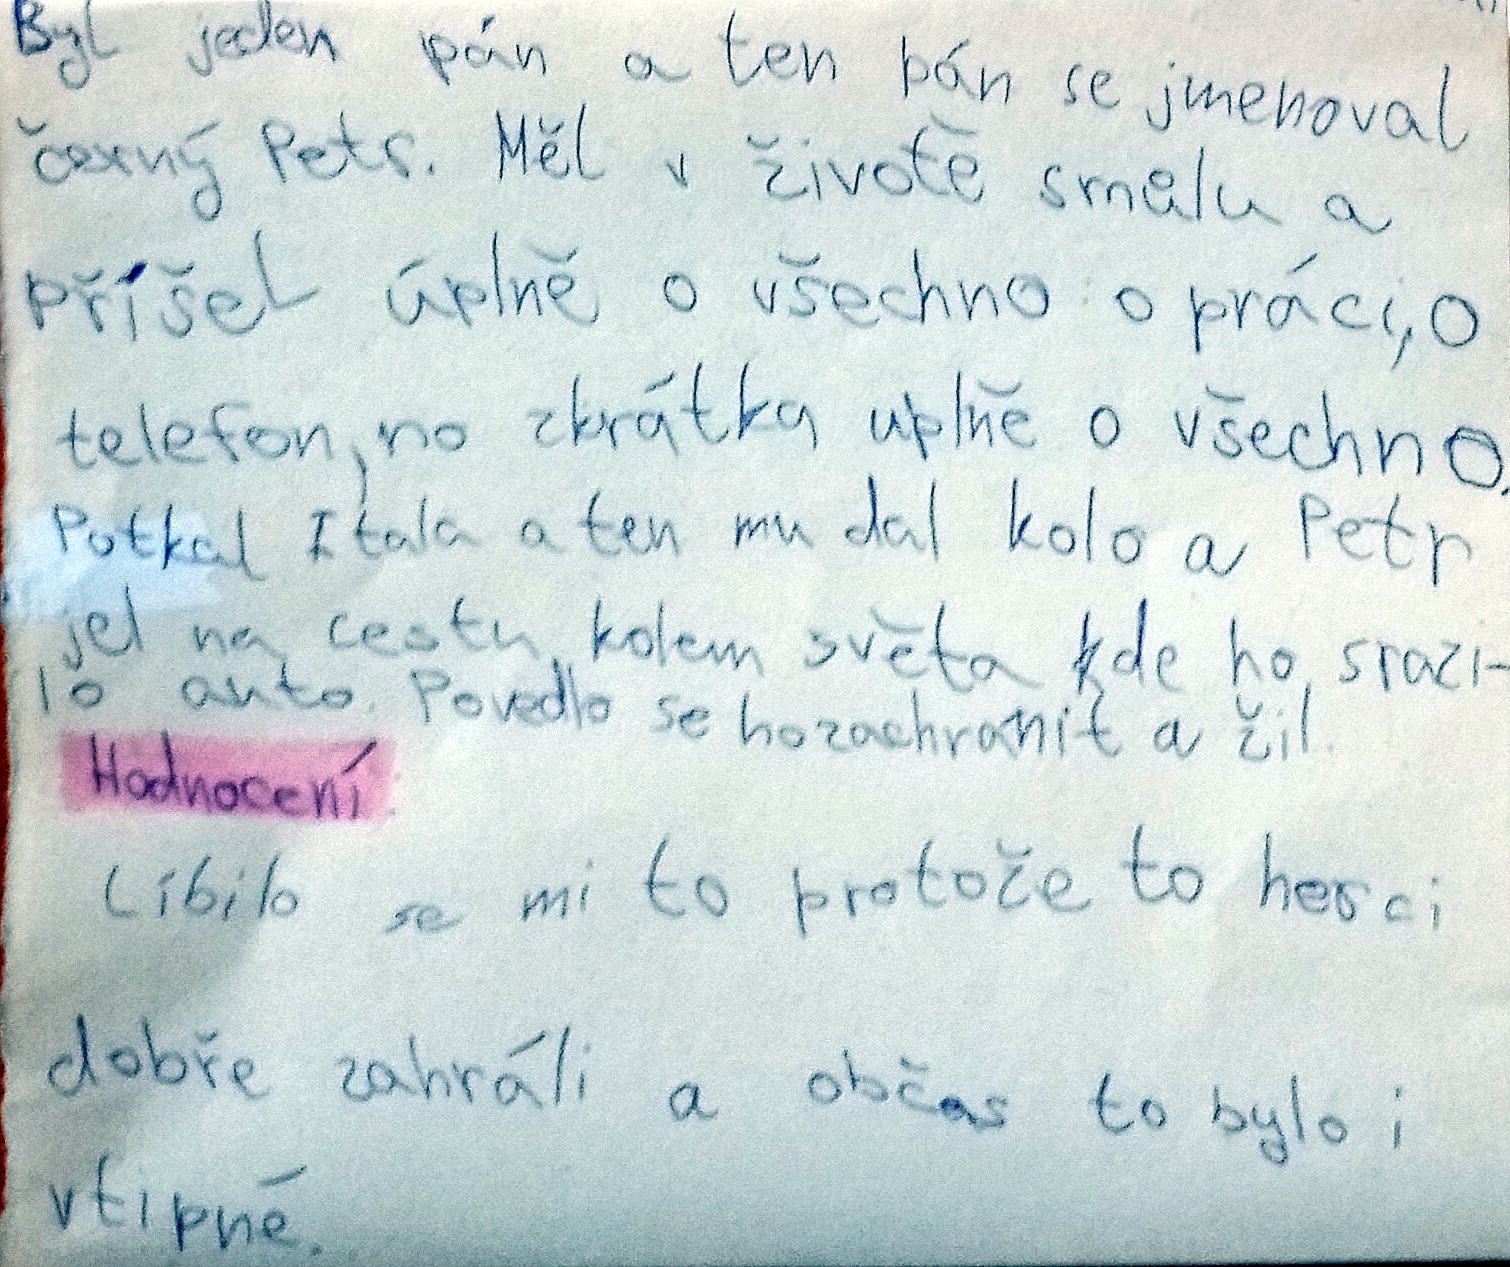 Byl jeden pán a ten pán se jmenoval
černý Petr. Měl v životě smůlu a
příšel úplně o všechno o práci, o
telefon, no zkrátka uplně o všechno.
Potkal Itala a ten mu dal kolo a Petr
jel na cestu kolem světa kde ho srazi-
lo auto. Povedlo se ho zachranit a žil.
Hodnocení
Líbilo se mi to protože to herci
dobře zahráli a občas to bylo i
vtipné.